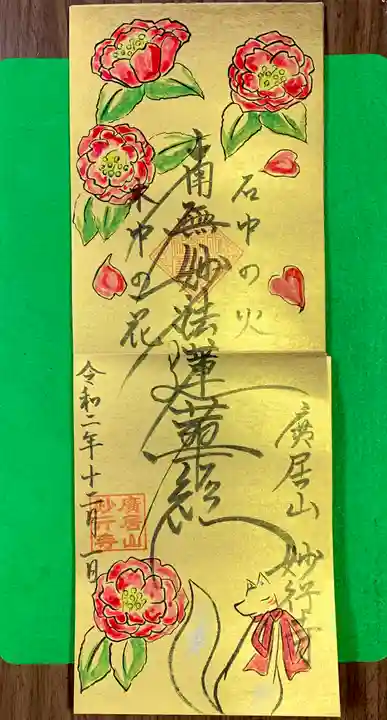 石中の火
木中の花
南無妙法蓮華経
廣居山 妙行寺
令和二年十二月一日
廣居山
妙行寺